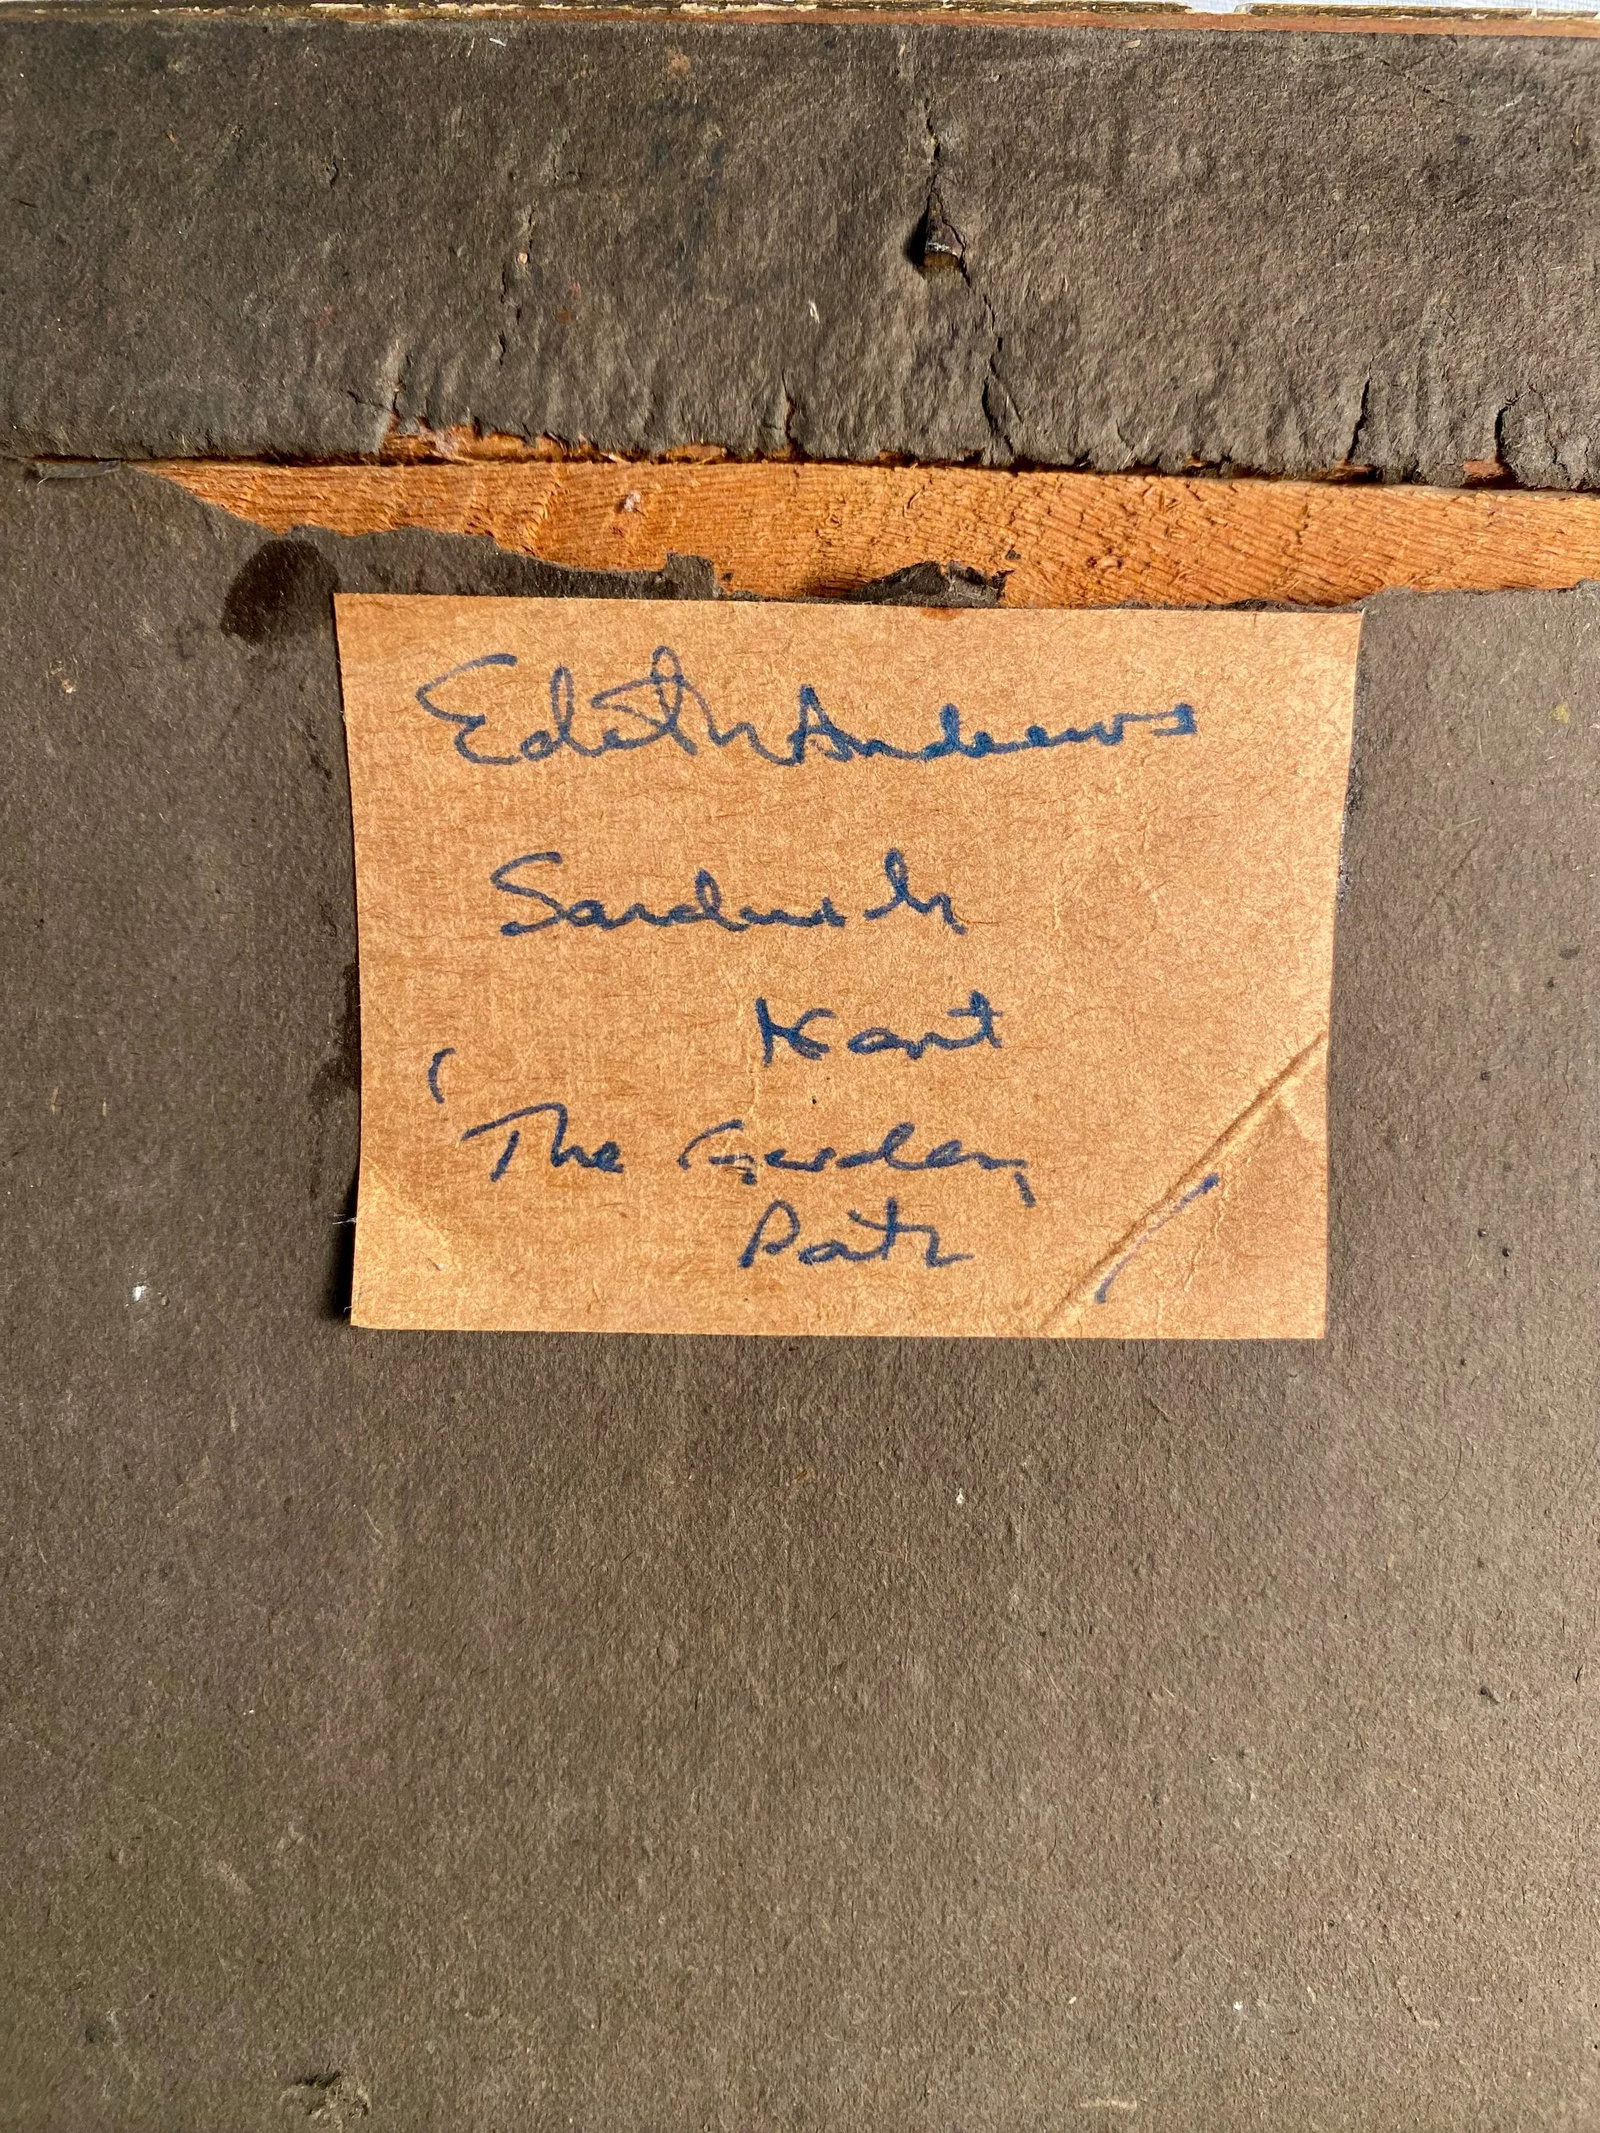 Edith Andrews
Sandwich
Kent
'The Garden
Path'